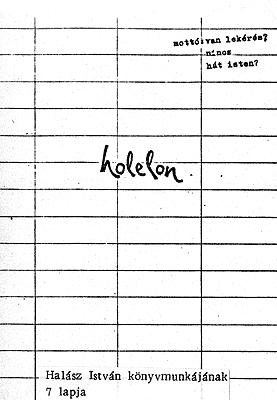 mottó:van lekérés?
nincs
hát isten?
holelon
Halász István könyvmunkájának
7 lapja